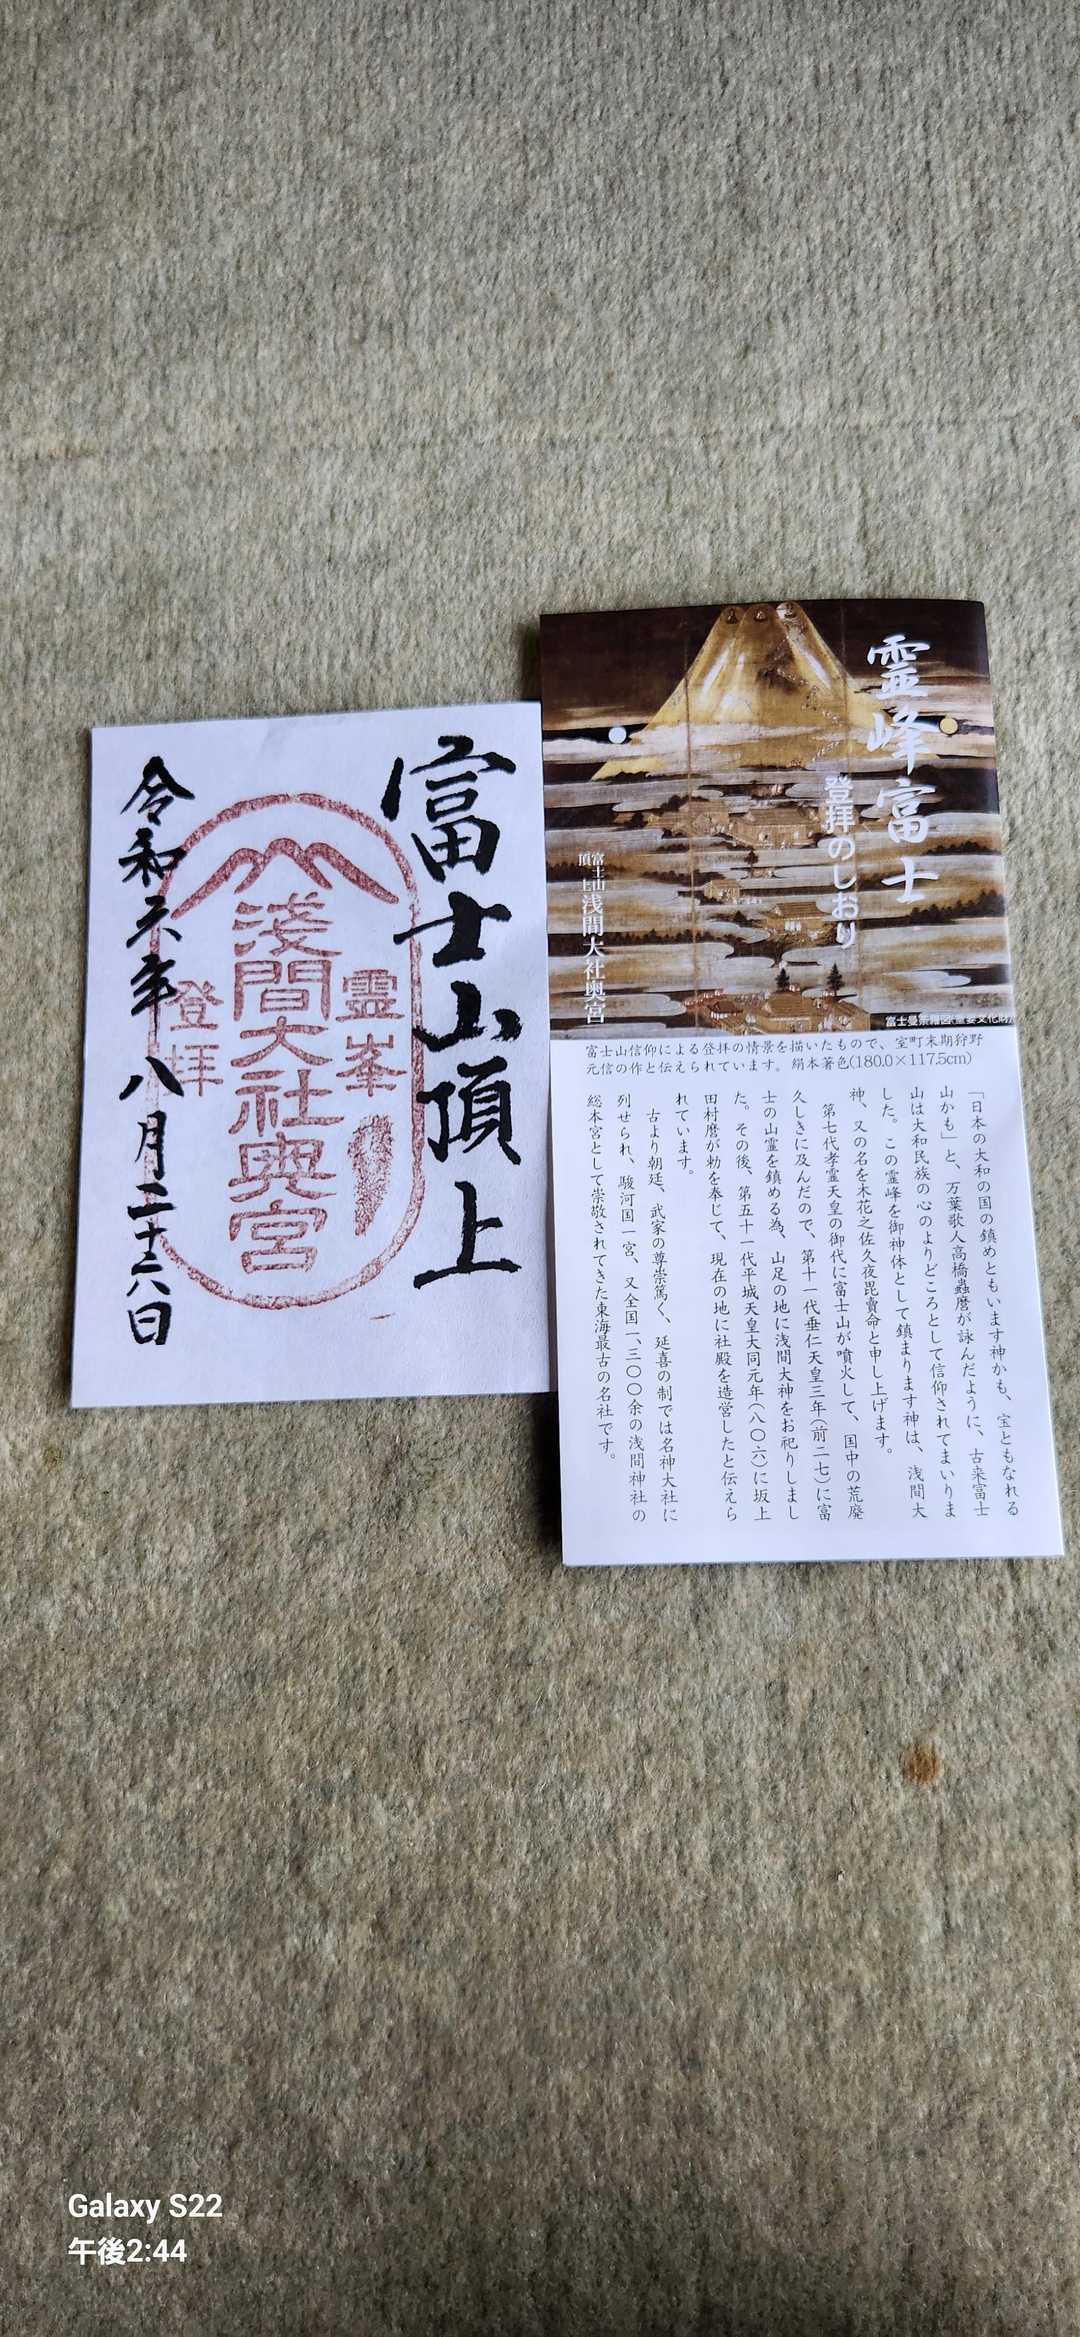 富士山頂上
霊峯
登拝
浅間大社奥宮
令和六年八月二十六日
霊峰富士
登拝のしおり
富士山頂上浅間大社奥宮
富士曼荼羅図(重要文化財)
富士山信仰による登拝の情景を描いたもので、室町末期狩野
元信の作と伝えられています。絹本著色(180.0×117.5cm)
「日本の大和の国の鎮めともいます神かも、宝ともなれる
山かも」と、万葉歌人高橋蟲麿が詠んだように、古来富士
山は大和民族の心のよりどころとして信仰されてまいりま
した。この霊峰を御神体として鎮まります神は、浅間大
神、又の名を木花之佐久夜毘賣命と申し上げます。
第七代孝霊天皇の御代に富士山が噴火して、国中の荒廃
久しきに及んだので、第十一代垂仁天皇三年(前二七)に富
士の山霊を鎮める為、山足の地に浅間大神をお祀りしまし
た。その後、第五十一代平城天皇大同元年(八〇六)に坂上
田村麿が勅を奉じて、現在の地に社殿を造営したと伝えら
れています。
古より朝廷、武家の尊崇篤く、延喜の制では名神大社に
列せられ、駿河国一宮、又全国一、三〇〇余の浅間神社の
総本宮として崇敬されてきた東海最古の名社です。
Galaxy S22
午後2:44